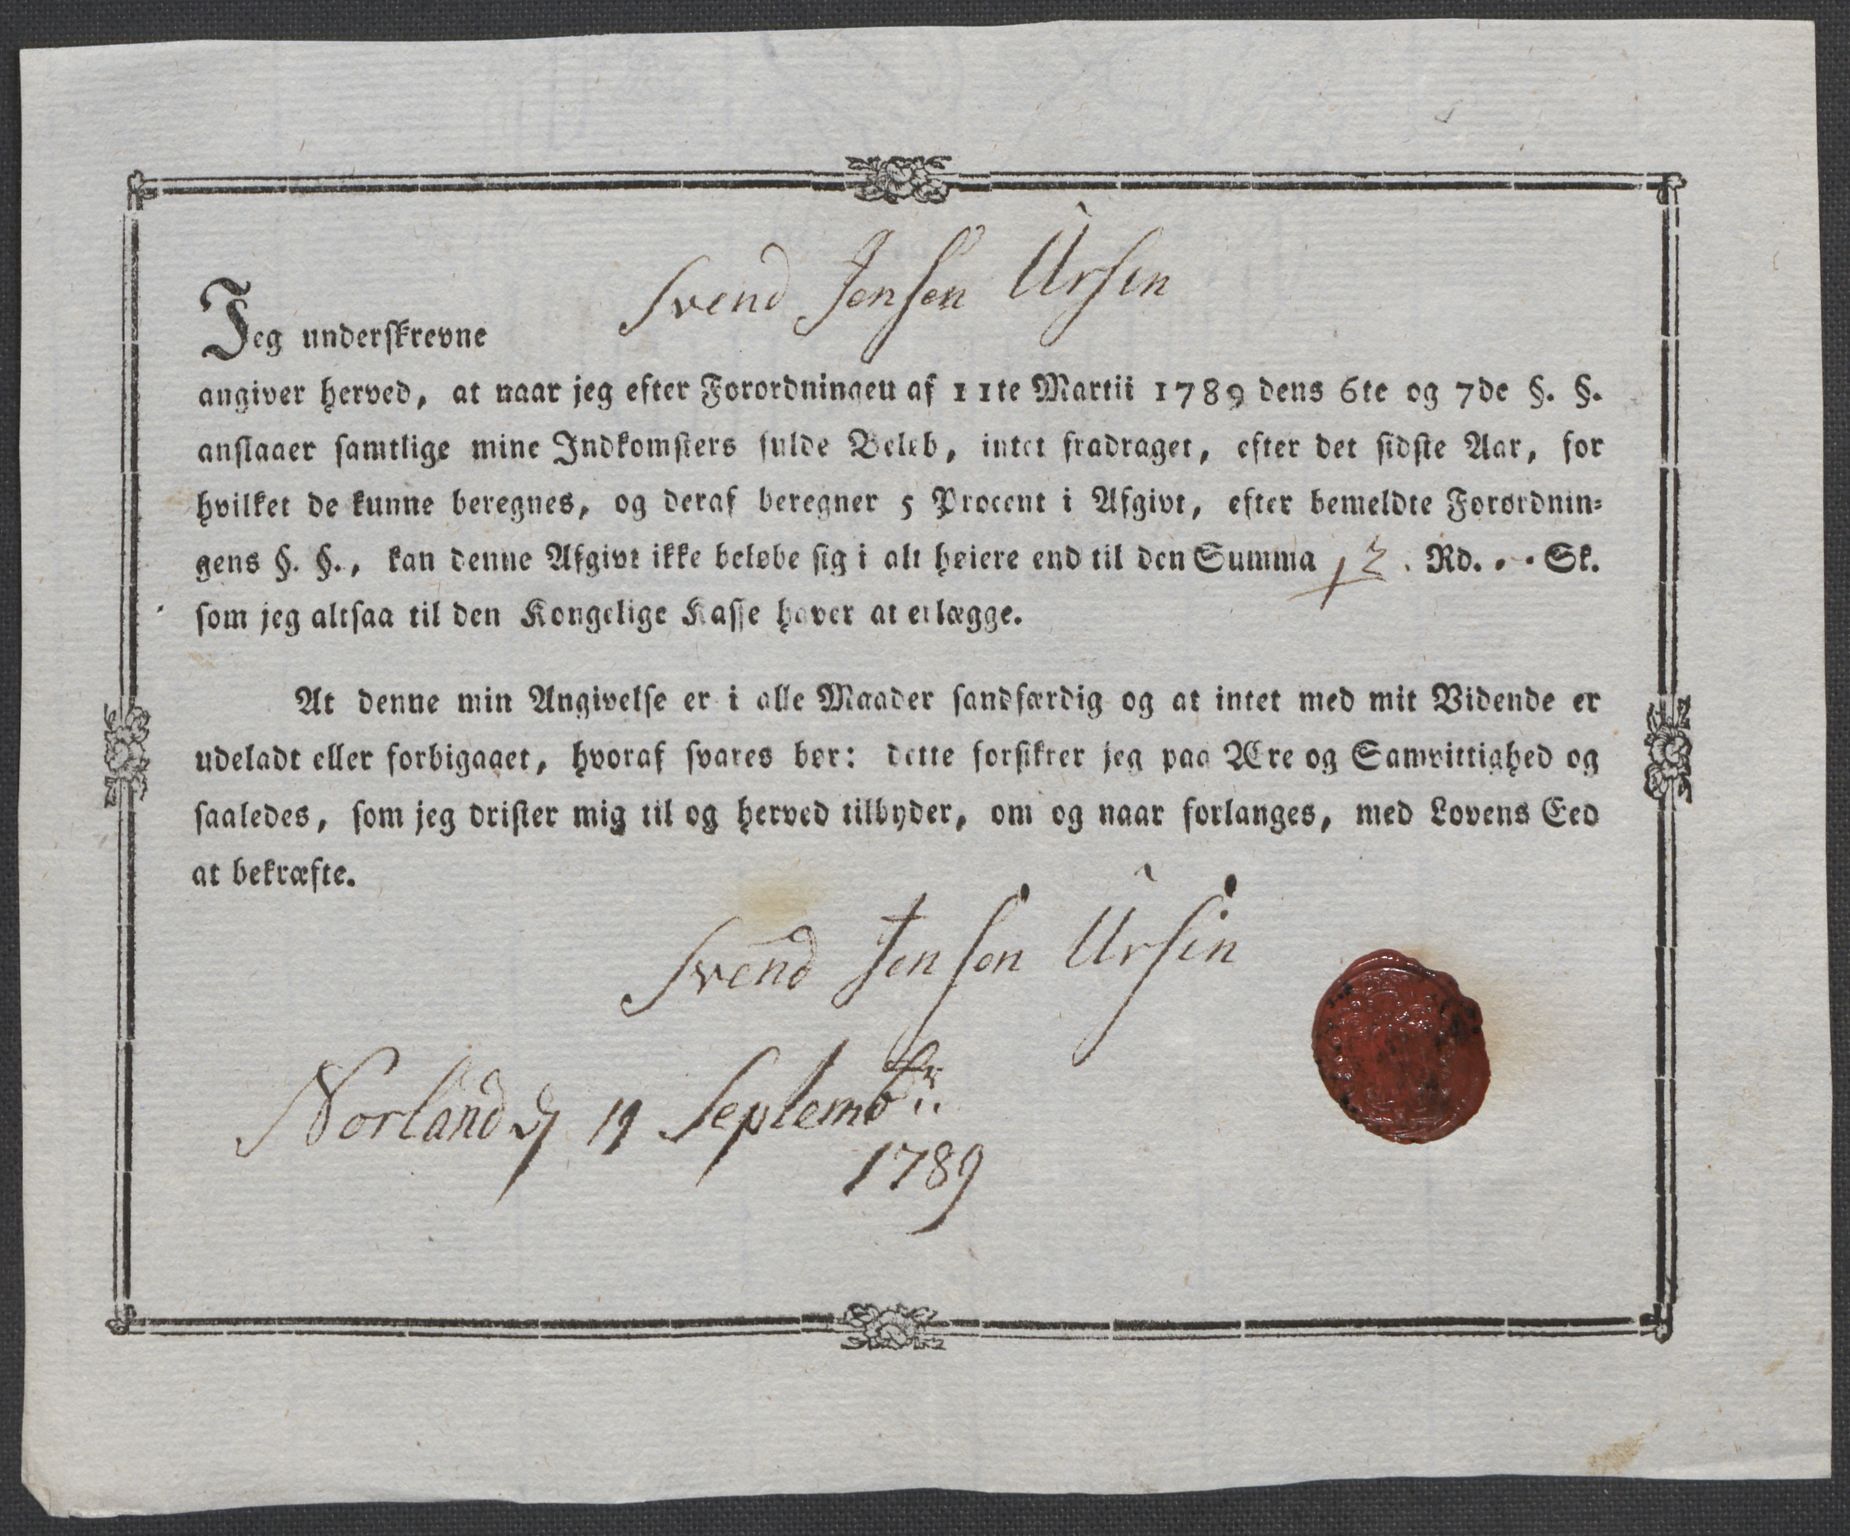 Svend Jensen Ursin
Jeg underskrevne
angiver herved, at naar jeg efter Forordningen af 11te Martii 1789 dens 6te og 7de §. §.
anslaaer samtlige mine Indkomsters fulde Beløb, intet fradraget, efter det sidste Aar, for
hvilket de kunne beregnes, og deraf beregner 5 Procent i Afgivt, efter bemeldte Forordnin-
gens §. §., kan denne Afgivt ikke beløbe sig i alt høiere end til den Summa 12. Rd. . . Sk.
som jeg altsaa til den Kongelige Kasse haver at erlægge.
At denne min Angivelse er i alle Maader sandfærdig og at intet med mit Vidende er
udeladt eller forbigaaet, hvoraf svares bør: dette forsikrer jeg paa Ære og Samvittighed og
saaledes, som jeg drister mig til og herved tilbyder, om og naar forlanges, med Lovens Eed
at bekræfte.
Svend Jensen Ursin
Norland d 19 Septembr
1789